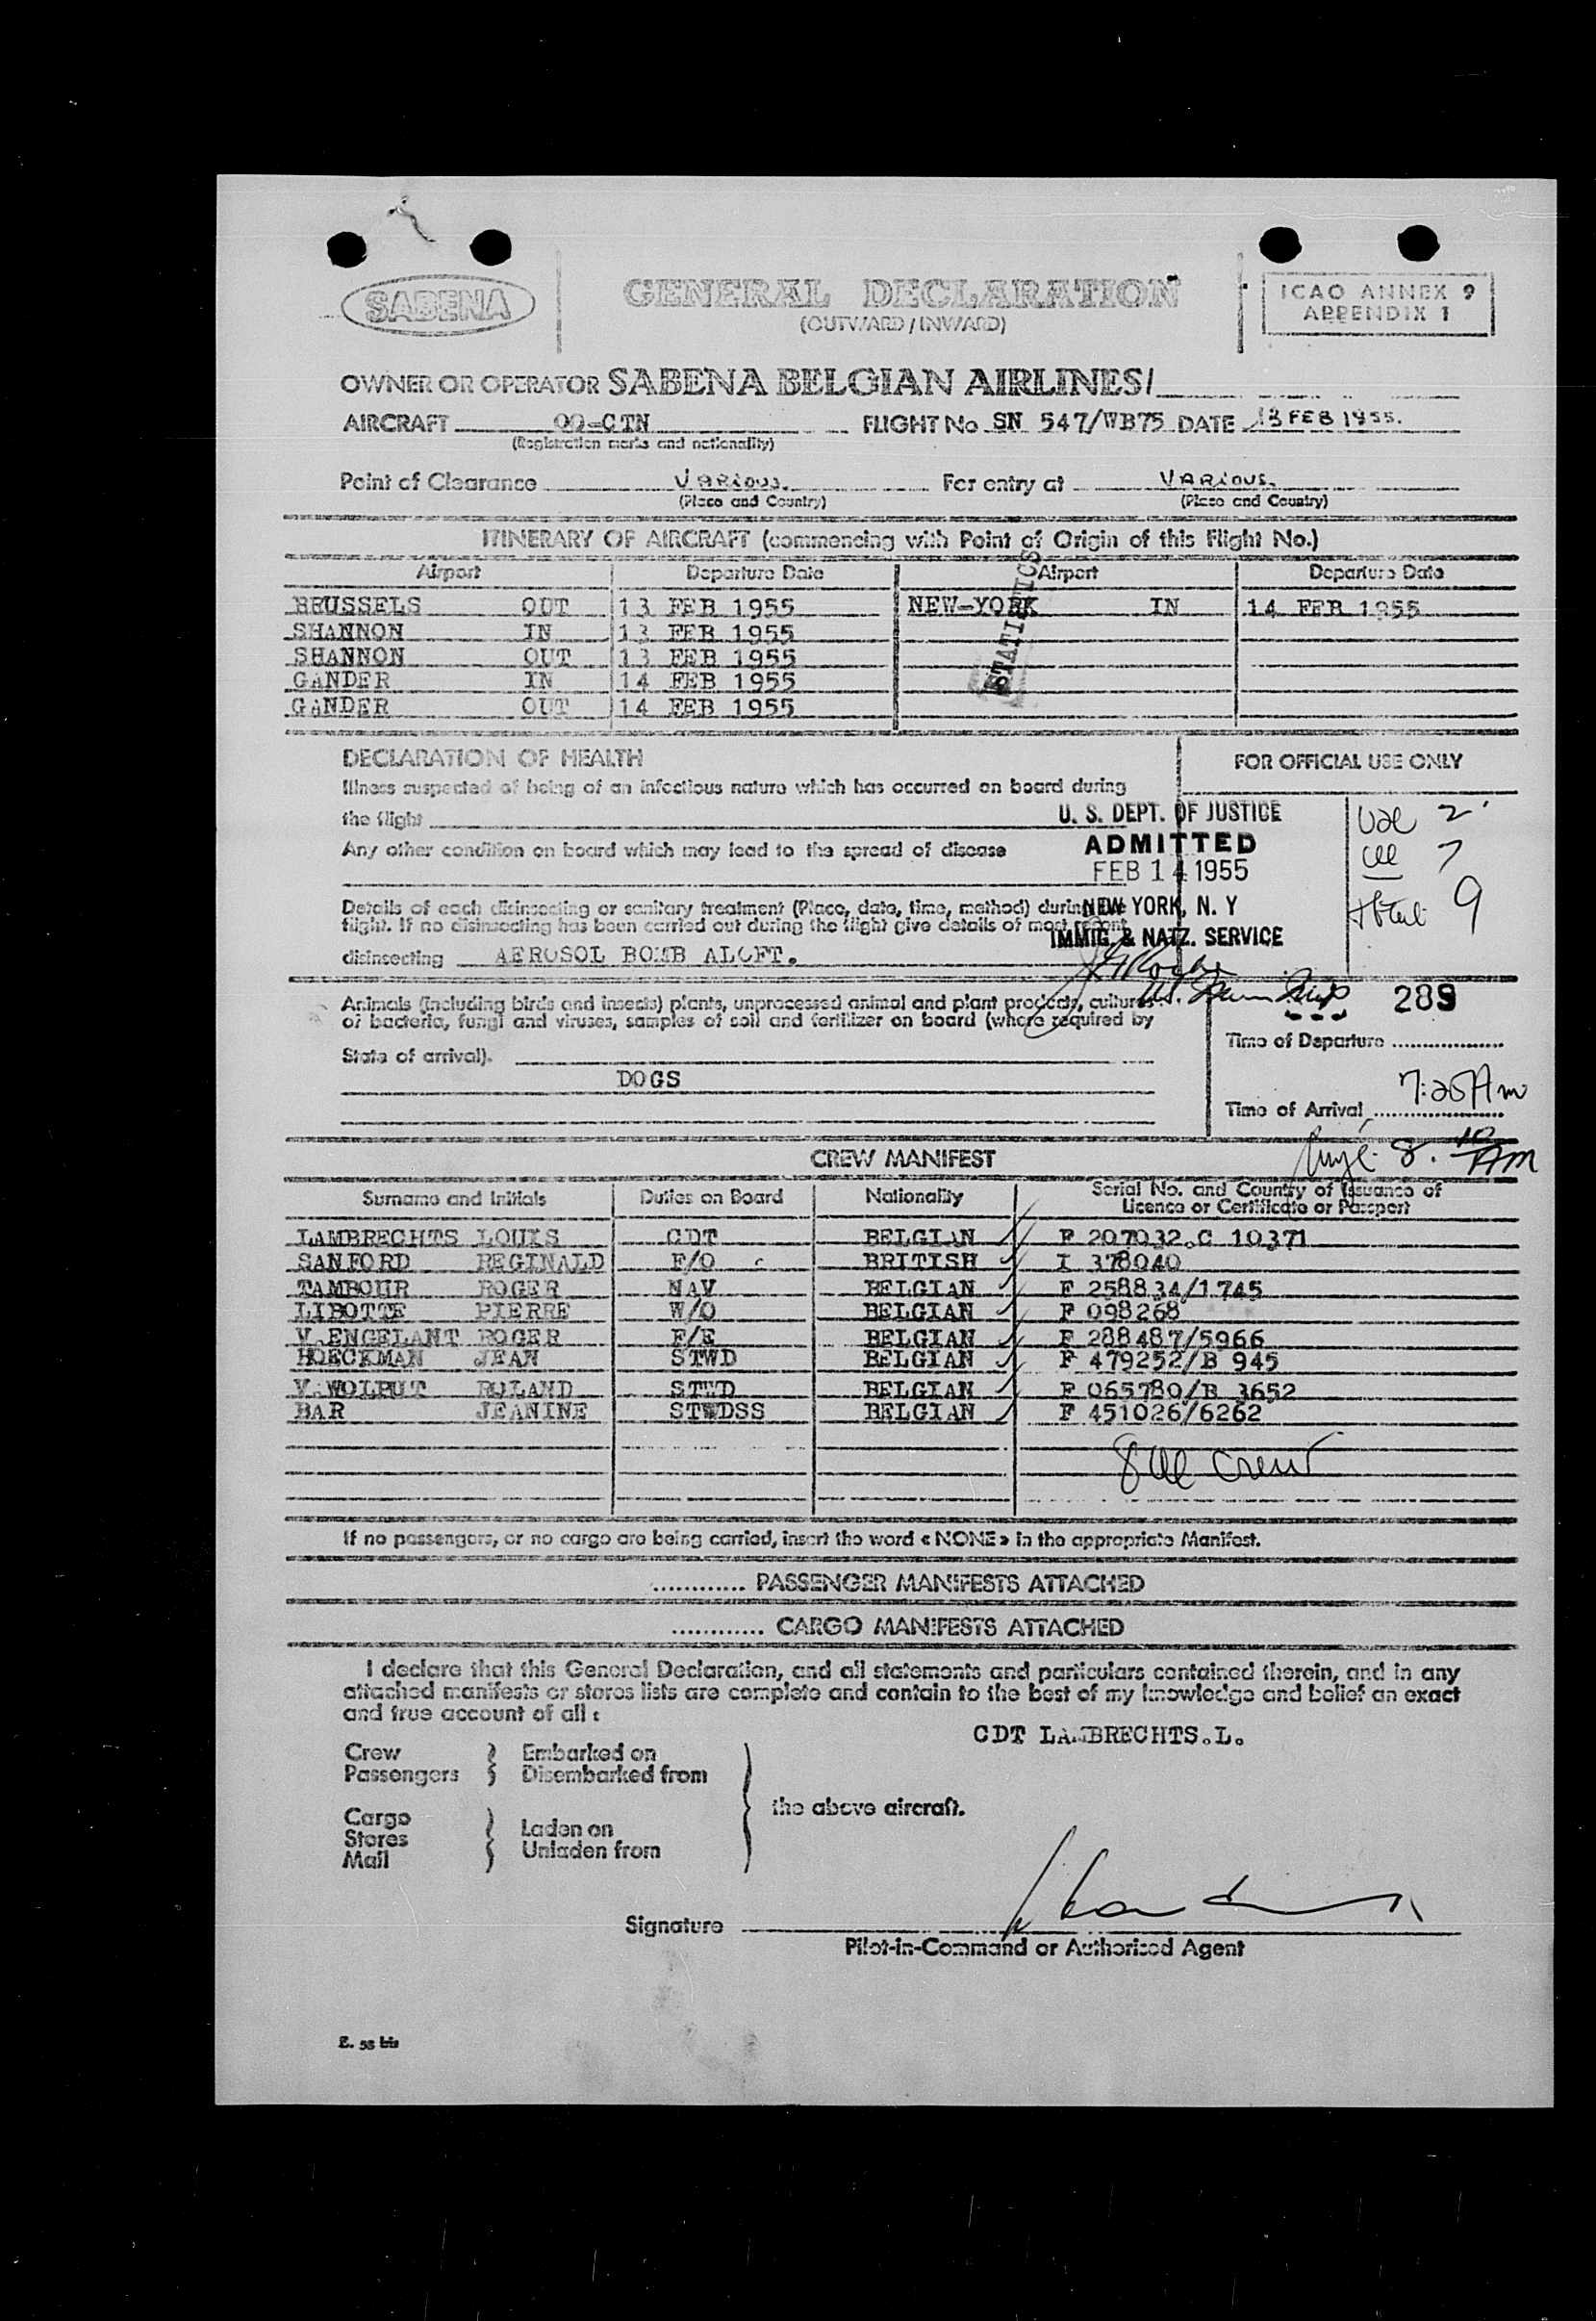 SABENA
GENERAL DECLARATION
(OUTWARD / INWARD)
ICAO ANNEX 9
APPENDIX 1
OWNER OR OPERATOR SABENA BELGIAN AIRLINES/
AIRCRAFT OO-CTN FLIGHT No SN 547/WB75 DATE 13 FEB 1955.
(Registration marks and nationality)
Point of Clearance VARIOUS. For entry at VARIOUS.
(Place and Country) (Place and Country)
ITINERARY OF AIRCRAFT (commencing with Point of Origin of this Flight No.)
Airport Departure Date Airport Departure Date
BRUSSELS OUT 13 FEB 1955 NEW-YORK IN 14 FEB 1955
SHANNON IN 13 FEB 1955
SHANNON OUT 13 FEB 1955
GANDER IN 14 FEB 1955
GANDER OUT 14 FEB 1955
STATISTICS
DECLARATION OF HEALTH FOR OFFICIAL USE ONLY
Illness suspected of being of an infectious nature which has occurred on board during
the flight
U. S. DEPT. OF JUSTICE
Any other condition on board which may lead to the spread of disease
ADMITTED
FEB 14 1955
NEW YORK, N. Y
IMMIG. & NATZ. SERVICE
USC 2
all 7
total 9
Details of each disinsecting or sanitary treatment (Place, date, time, method) during the
flight. If no disinsecting has been carried out during the flight give details of most recent
disinsecting AEROSOL BOMB ALOFT.
289
Animals (including birds and insects) plants, unprocessed animal and plant products, cultures
of bacteria, fungi and viruses, samples of soil and fertilizer on board (where required by
State of arrival).
DOGS
Time of Departure
Time of Arrival 7:25 Am
8.10 AM
CREW MANIFEST
Surname and Initials Duties on Board Nationality Serial No. and Country of Issuance of
Licence or Certificate or Passport
LAMBRECHTS LOUIS CDT BELGIAN F 207032.C 10371
SANFORD REGINALD F/O BRITISH I 378040
TAMBOUR ROGER NAV BELGIAN F 258834/1745
LIBOTTE PIERRE W/O BELGIAN F 098268
V.ENGELANT ROGER F/E BELGIAN F 288487/5966
HOECKMAN JEAN STWD BELGIAN F 479252/B 945
V.WOLPUT ROLAND STWD BELGIAN F 065780/B 3652
BAR JEANINE STWDSS BELGIAN F 451026/6262
8 all crew
If no passengers, or no cargo are being carried, insert the word « NONE » in the appropriate Manifest.
............ PASSENGER MANIFESTS ATTACHED
............ CARGO MANIFESTS ATTACHED
I declare that this General Declaration, and all statements and particulars contained therein, and in any
attached manifests or stores lists are complete and contain to the best of my knowledge and belief an exact
and true account of all :
CDT LAMBRECHTS.L.
Crew Embarked on
Passengers Disembarked from
the above aircraft.
Cargo
Stores Laden on
Mail Unladen from
Signature
Pilot-in-Command or Authorised Agent
E. 55 bis